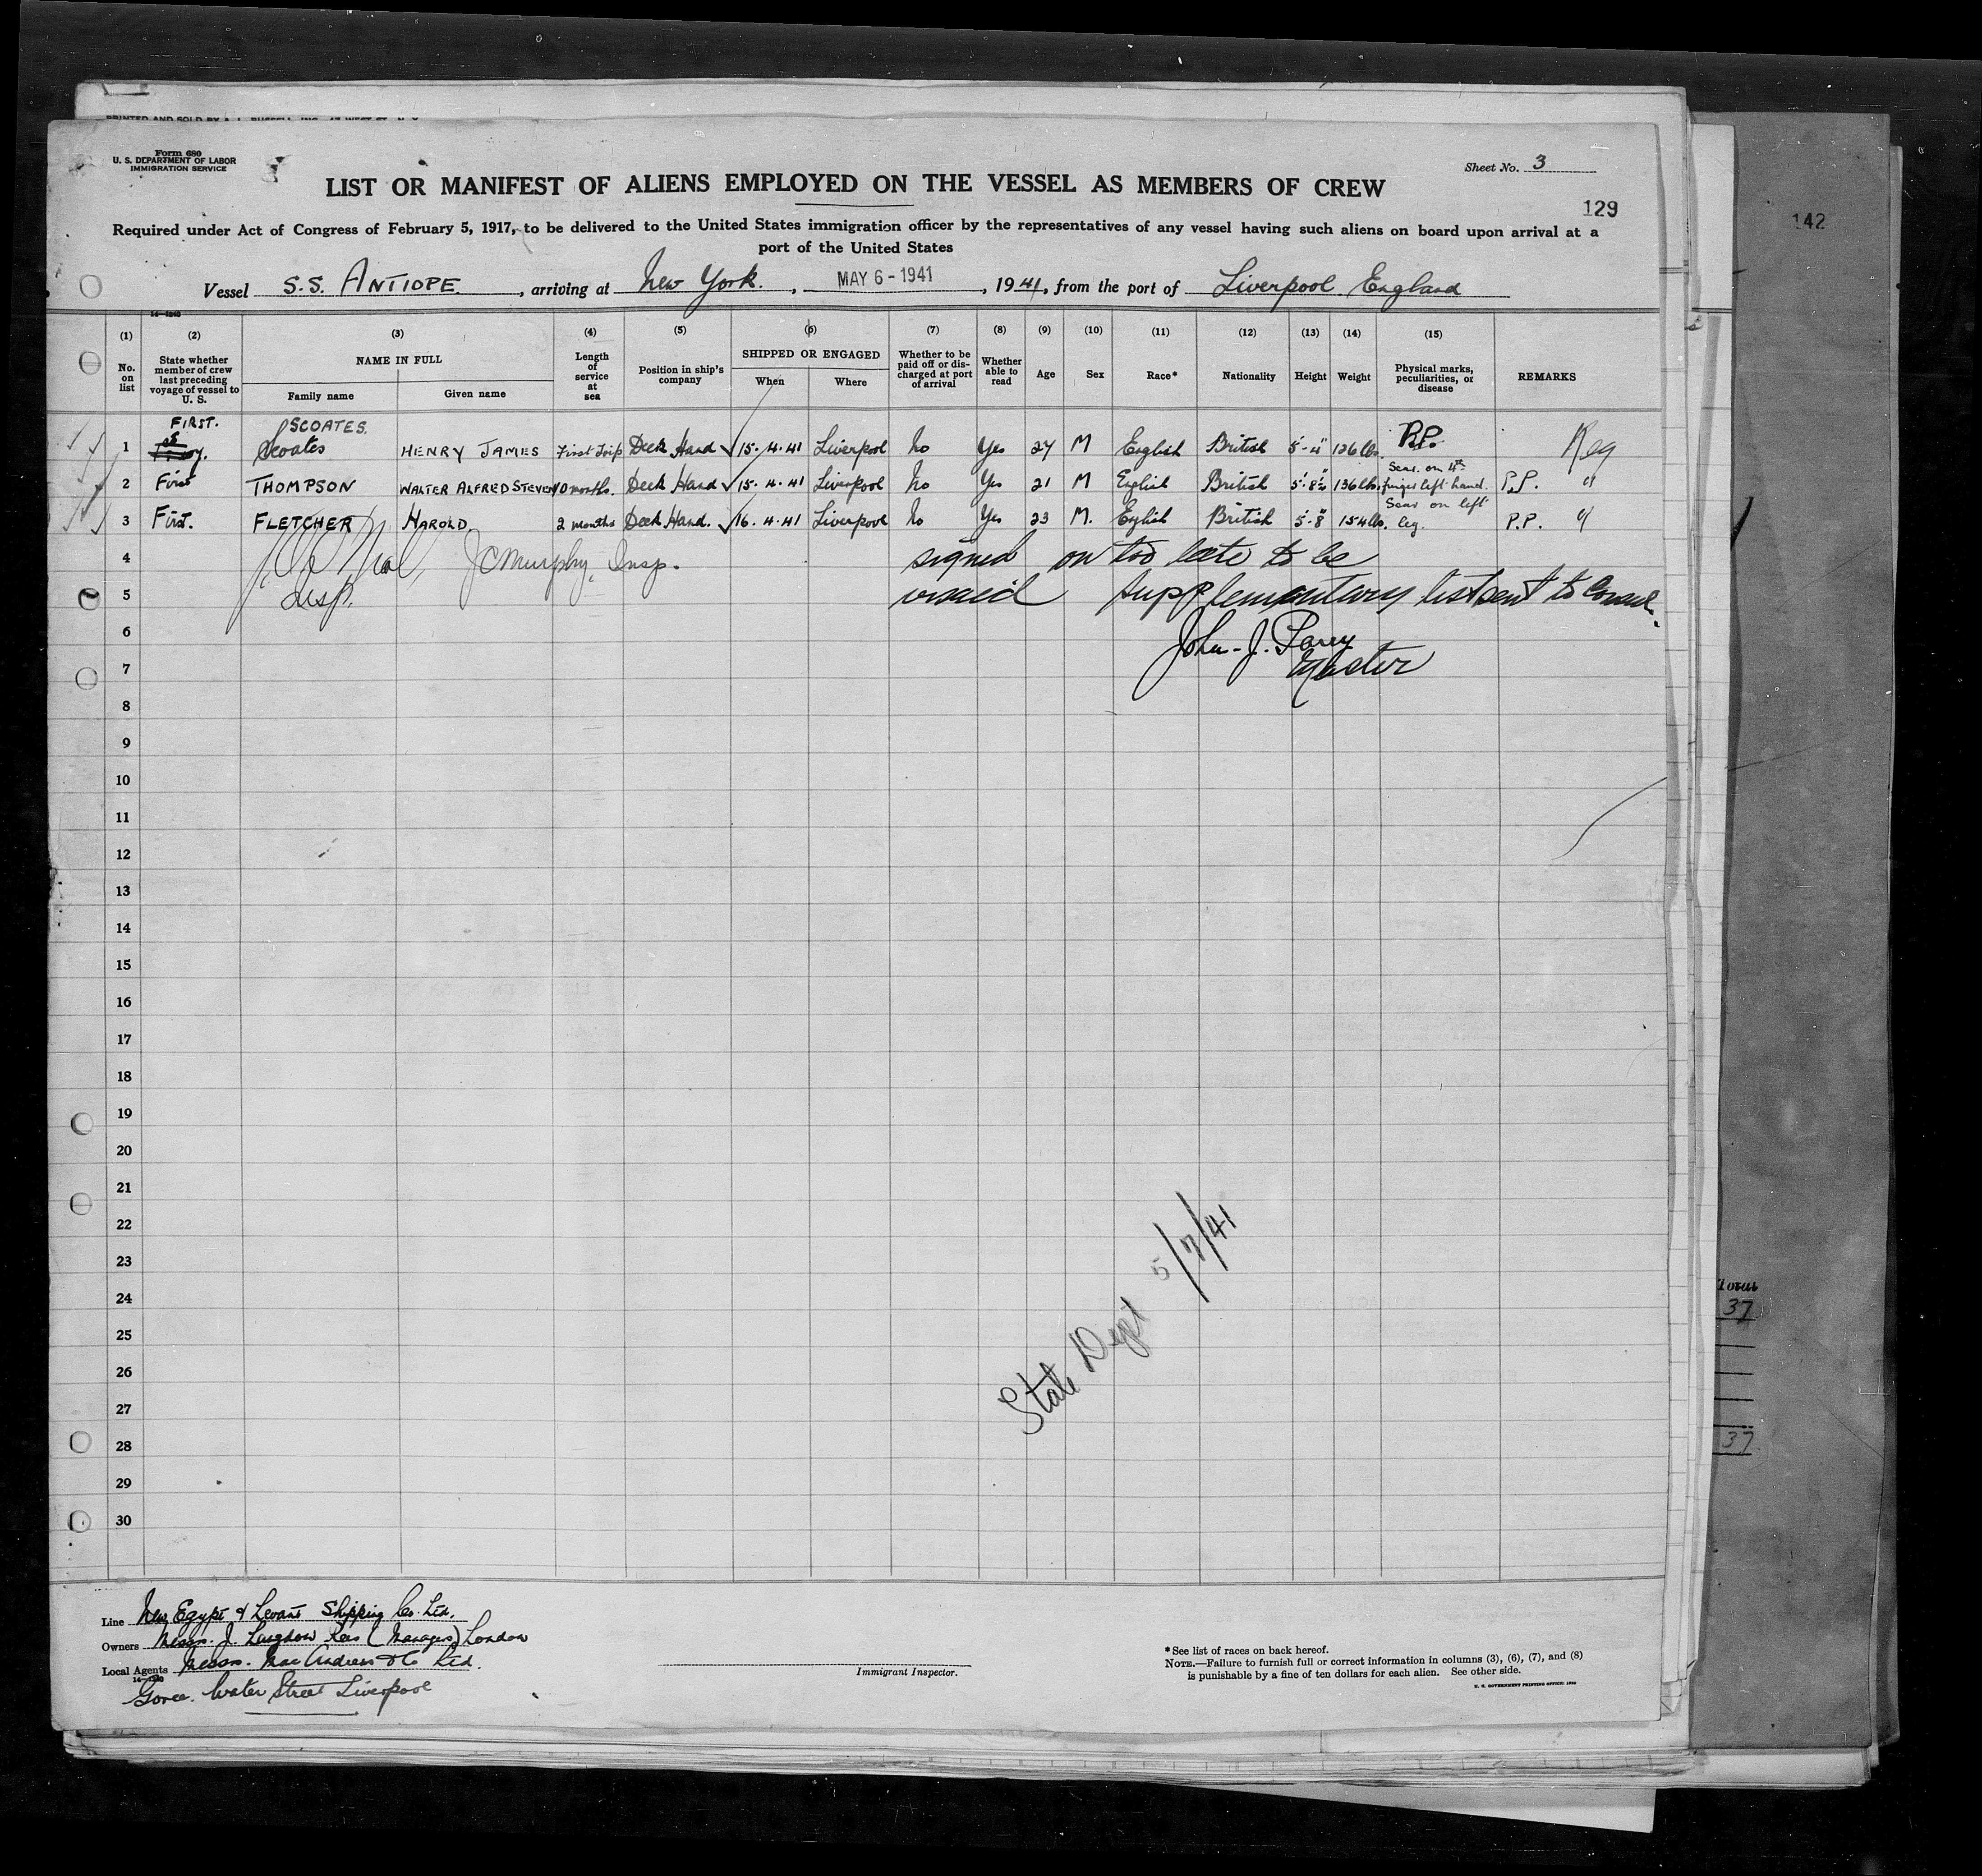 PRINTED AND SOLD BY
Form 680
U. S. DEPARTMENT OF LABOR
IMMIGRATION SERVICE
Sheet No. 3
LIST OR MANIFEST OF ALIENS EMPLOYED ON THE VESSEL AS MEMBERS OF CREW
129
142
Required under Act of Congress of February 5, 1917, to be delivered to the United States immigration officer by the representatives of any vessel having such aliens on board upon arrival at a
port of the United States
Vessel S.S. ANTIOPE, arriving at New York., MAY 6 - 1941, 1941, from the port of Liverpool England
(1) (2) (3) (4) (5) (6) (7) (8) (9) (10) (11) (12) (13) (14) (15)
No. on list
State whether member of crew last preceding voyage of vessel to U. S.
NAME IN FULL
Family name
Given name
Length of service at sea
Position in ship's company
SHIPPED OR ENGAGED
When
Where
Whether to be paid off or discharged at port of arrival
Whether able to read
Age
Sex
Race*
Nationality
Height
Weight
Physical marks, peculiarities, or disease
REMARKS
FIRST. SCOATES.
1 Scoates HENRY JAMES First Trip Deck Hand 15.4.41 Liverpool No Yes 27 M English British 5'-4" 126 lbs. P.P. Reg
2 First THOMPSON WALTER ALFRED STEVEN 10 months. Deck Hand 15.4.41 Liverpool No Yes 21 M English British 5'-8½" 136 lbs. Scar on 4th finger left hand. P.P. "
3 First. FLETCHER HAROLD. 2 months Deck Hand. 16.4.41 Liverpool No Yes 23 M. English British 5'-8" 154 lbs. Scar on left leg. P.P. "
4 JC Murphy, Insp. signed on too late to be
5 Insp. visaed supplementary list sent to Consul.
6 John J.
7 Master
8
9
10
11
12
13
14
15
16
17
18
19
20
21
22
23
24
25
26
27
28
29
30
State Dept 5/7/41
Total
37
37
Line New Egypt & Levant Shipping Co. Ltd.
Owners Messrs. J. (Managers) London
Local Agents Messrs. MacAndrews & Co Ltd.
Goree. Water Street Liverpool
Immigrant Inspector.
*See list of races on back hereof.
NOTE.—Failure to furnish full or correct information in columns (3), (6), (7), and (8)
is punishable by a fine of ten dollars for each alien. See other side.